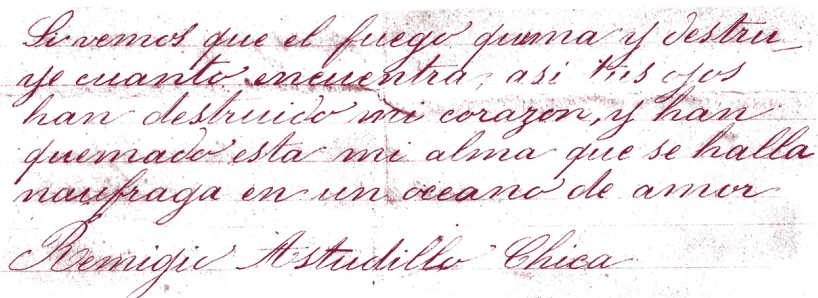 Si vemos que el fuego quema y destru-
ye cuanto encuentra, asi tus ojos
han destruido mi corazon, y han
quemado esta mi alma que se halla
naufraga en un oceano de amor
Remigio Astudillo Chica